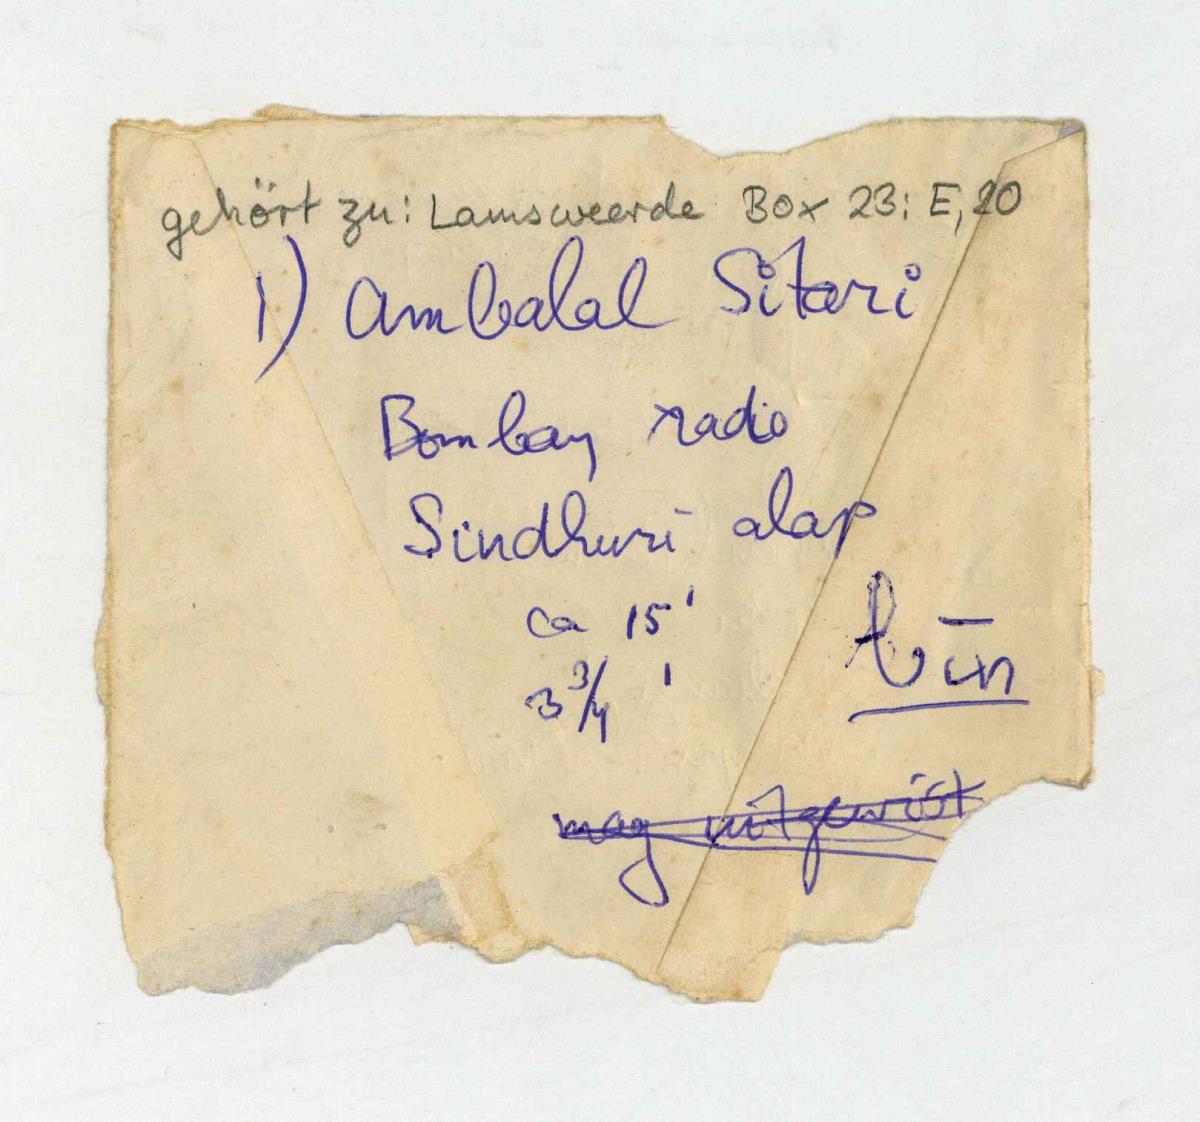 gehört zu: Lamsweerde Box 23: E, 20
1) Ambalal Sitari
Bombay radio
Sindhuri alap
ca 15'
bīn
3 3/4 '
mag uitgewist